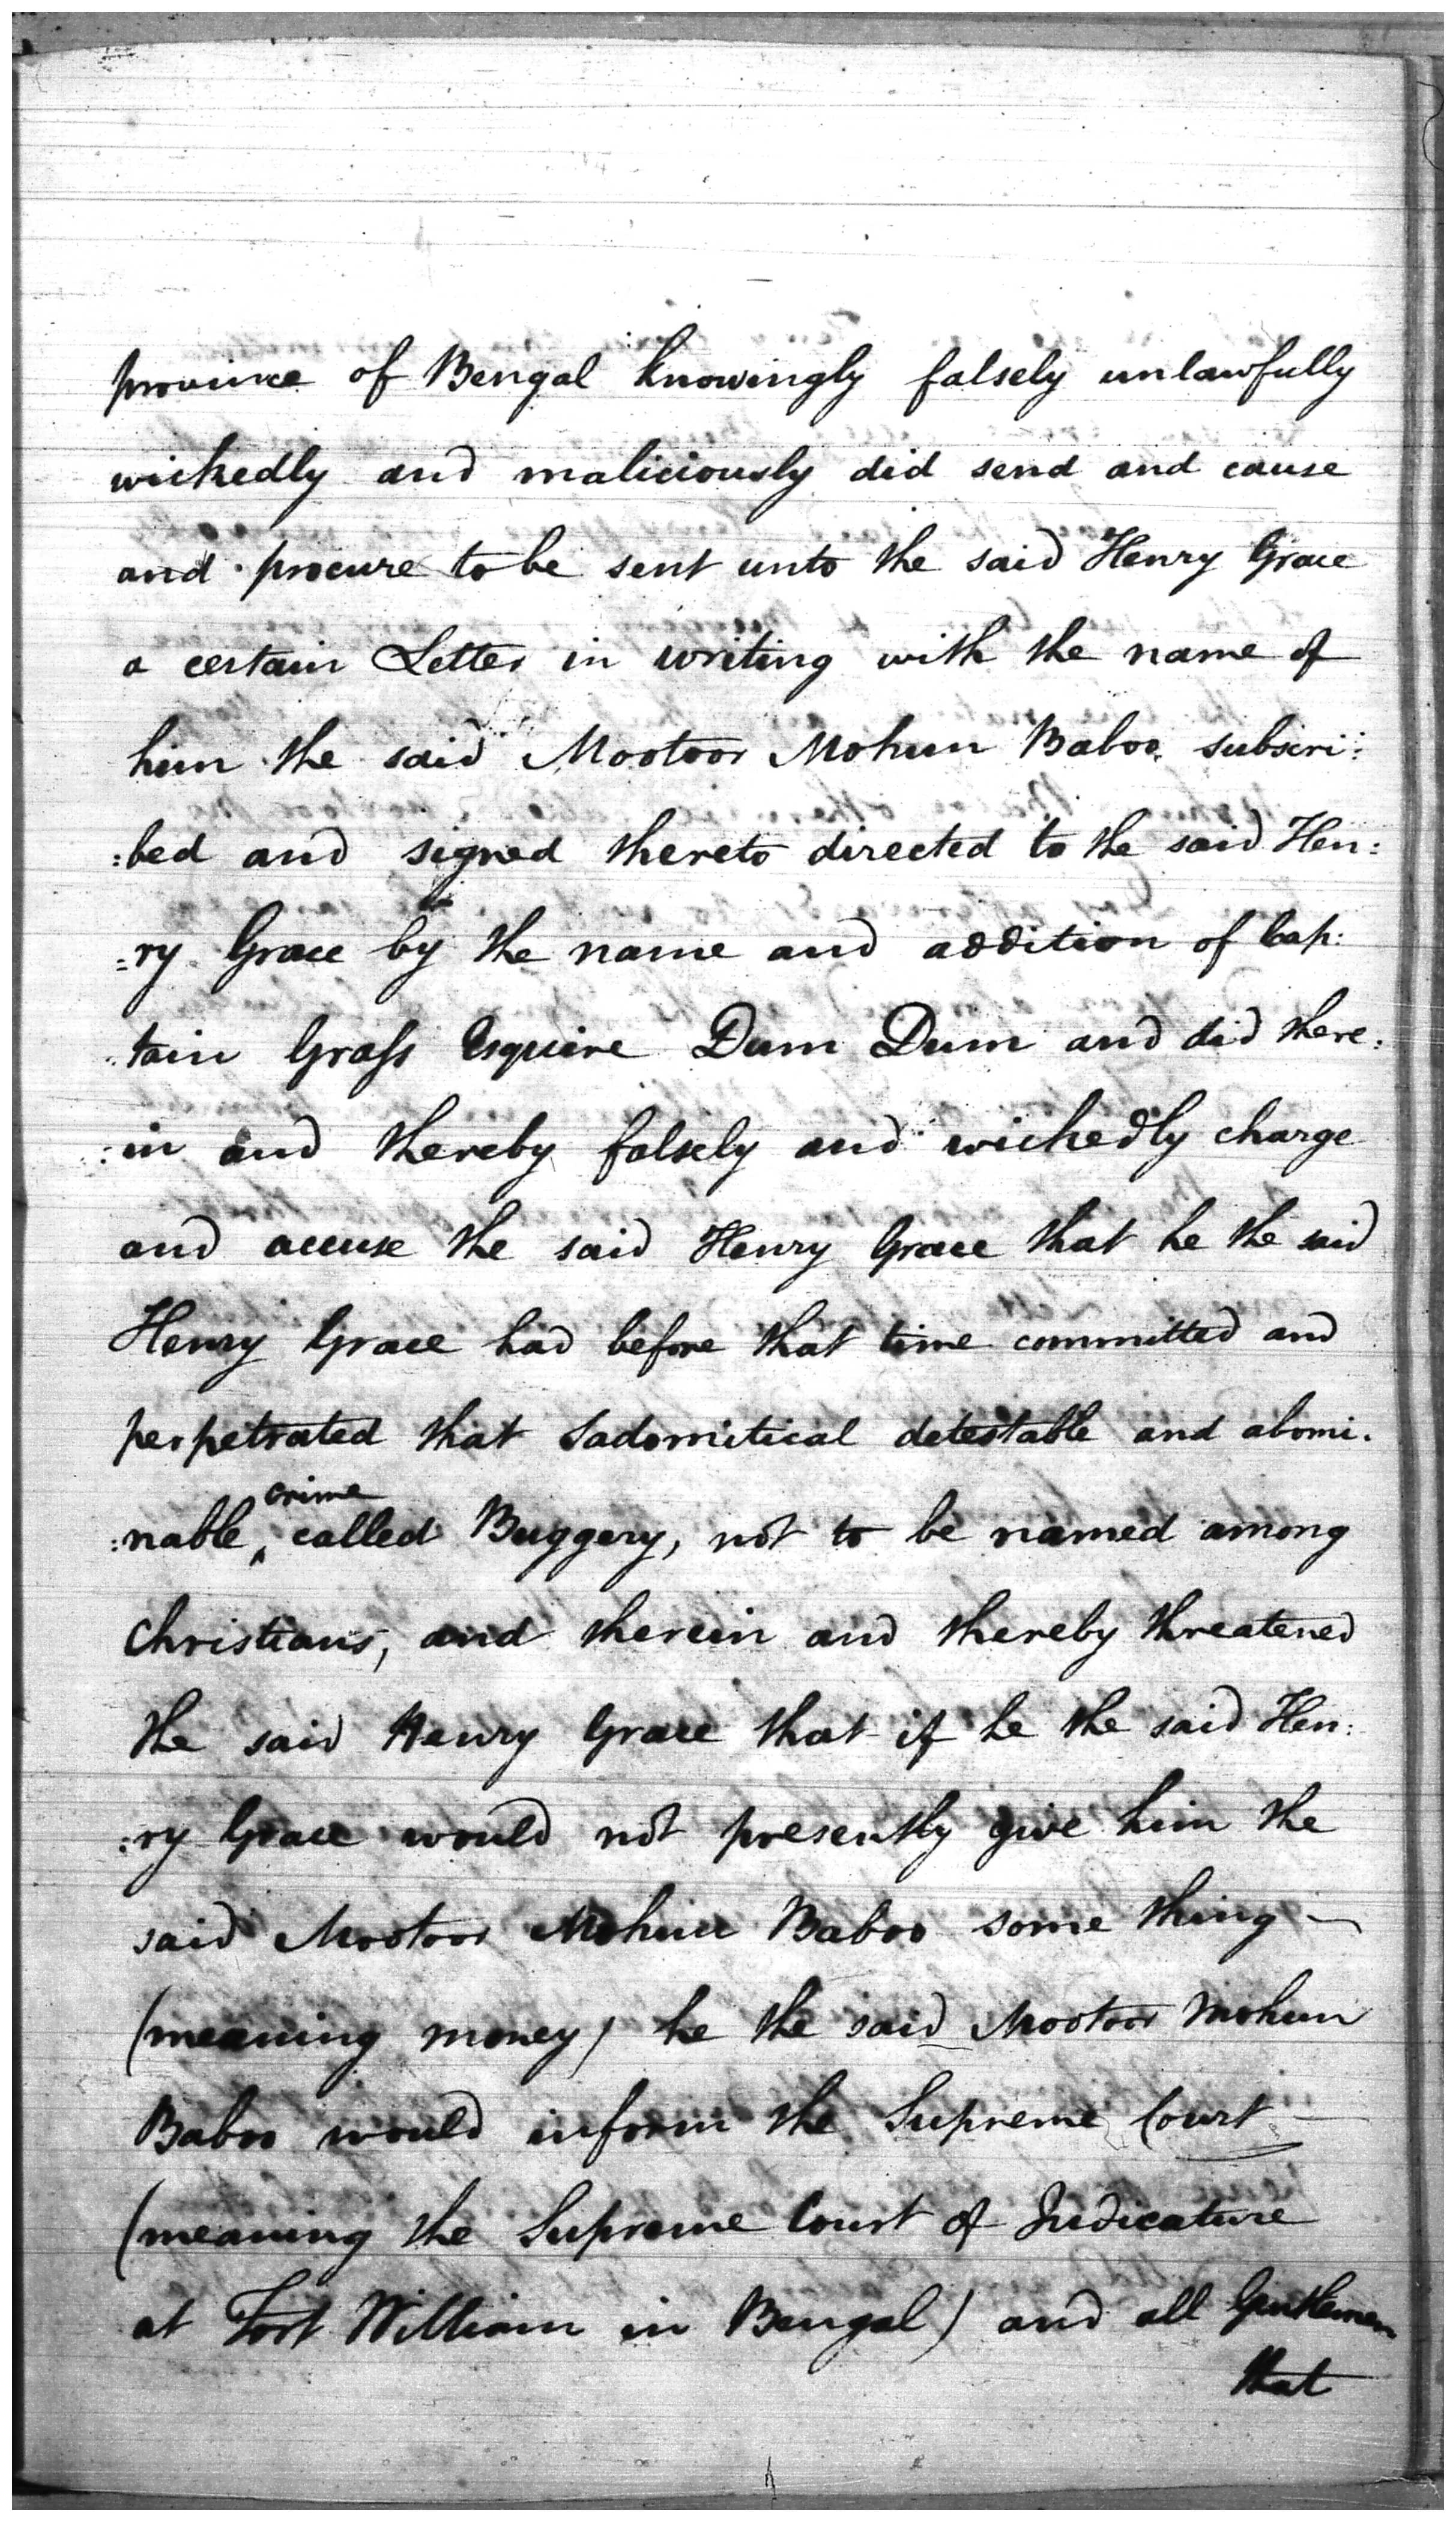 province of Bengal knowingly falsely unlawfully
wickedly and maliciously did send and cause
and procure to be sent unto the said Henry Grace
a certain Letter in writing with the name of
him the said Mootoor Mohun Baboo subscri:
:bed and signed thereto directed to the said Hen:
=ry Grace by the name and addition of Cap:
:tain Graſs Esquire Dum Dum and did there:
:in and thereby falsely and wickedly charge
and accuse the said Henry Grace that he the said
Henry Grace had before that time committed and
perpetrated that Sadomitical detestable and abomi:
crime
:nable ‸ called Buggery, not to be named among
Christians, and therein and thereby threatened
the said Henry Grace that if he the said Hen:
:ry Grace would not presently give him the
said Mootoor Mohun Baboo some thing —
(meaning money) he the said Mootoor Mohun
Baboo would inform the Supreme Court —
(meaning the Supreme Court of Judicature
at Fort William in Bengal) and all Gentlemen
that